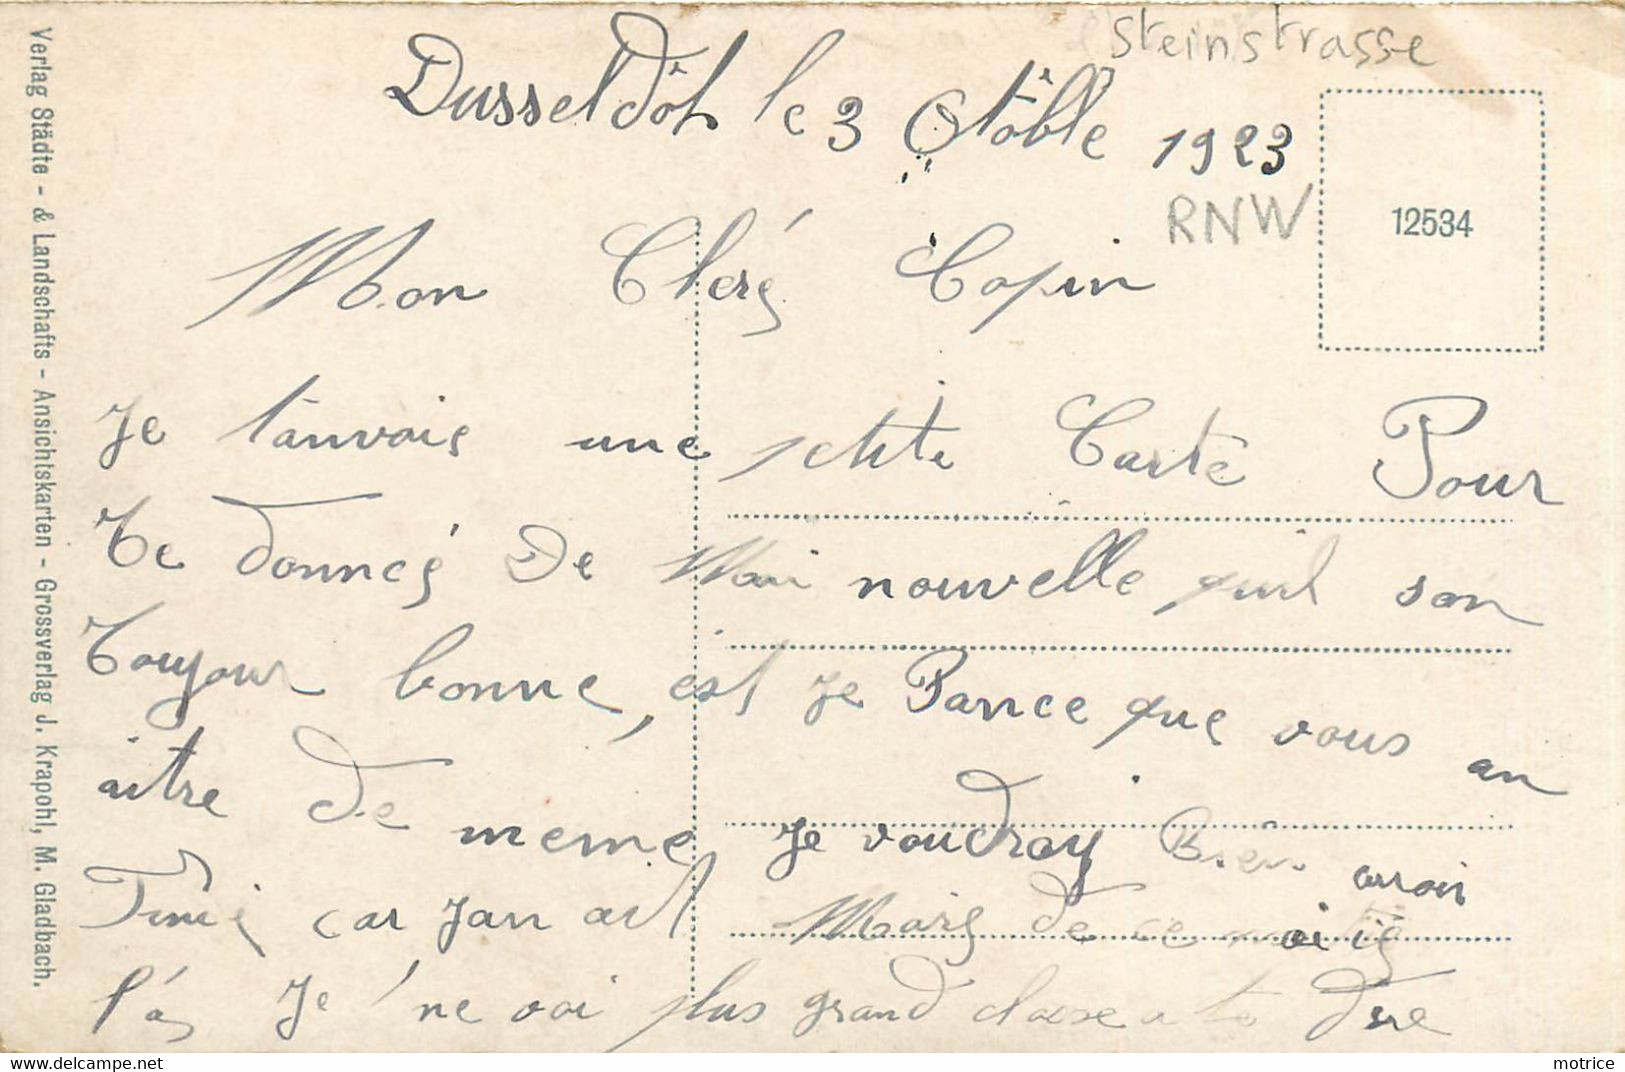 Steinstrasse
Dusseldôf le 3 Octôble 1923
RNW
12534
Mon Cheré Copin
Je t'anvois une petite Carte Pour
Te donneé De Mai nouvelle quil son
Toujour bonne, est Je Pance que vous an
aitre de meme, Je voudray Bien avoir
Finié car Jan ait Mais de ce
l'as Je ne voi plus grand chose a te dire
Verlag Städte - & Landschafts - Ansichtskarten - Grossverlag J. Krapohl, M. Gladbach.
motrice